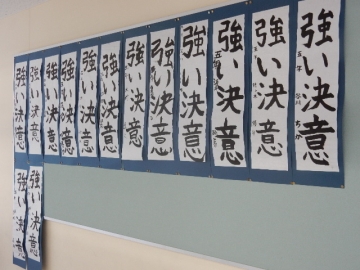 強い決意
強い決意
強い決意
強い決意
強い決意
強い決意
強い決意
強い決意
強い決意
強い決意
強い決意
強い決意
強い決意
強い決意